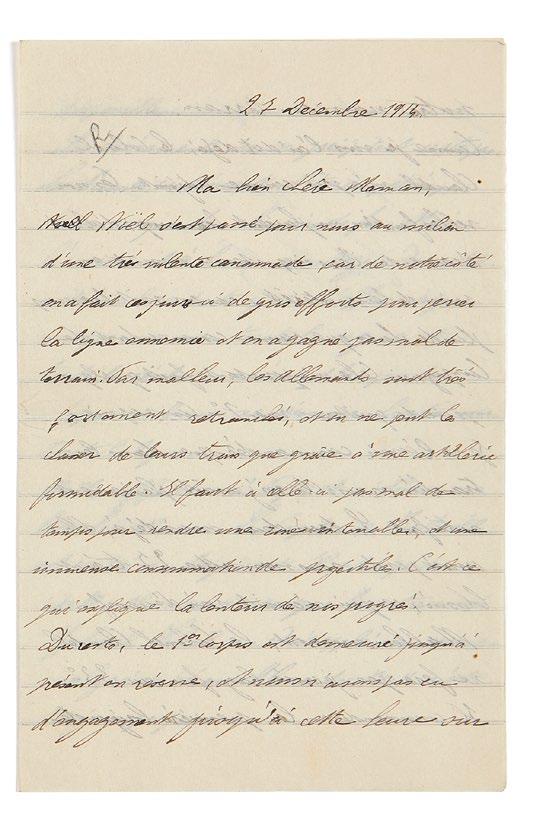 27 Décembre 1914
R/
Ma bien chère Maman,
Noël Noël s'est passé pour nous au milieu
d'une très violente canonnade, car de notre côté
on a fait ces jours ci de gros efforts pour percer
la ligne ennemie et on a gagné pas mal de
terrain. Par malheur, les Allemands sont très
fortement retranchés, et on ne peut les
chasser de leurs trous que grâce à une artillerie
formidable. Il faut à elle ci pas mal de
temps pour rendre une zone intenable, et une
immense consommation de projectiles. C'est ce
qui explique la lenteur de nos progrès.
Du reste, le 1er Corps est demeuré jusqu'à
présent en réserve, et nous n'avons pas eu
d'engagement jusqu'à cette heure sur